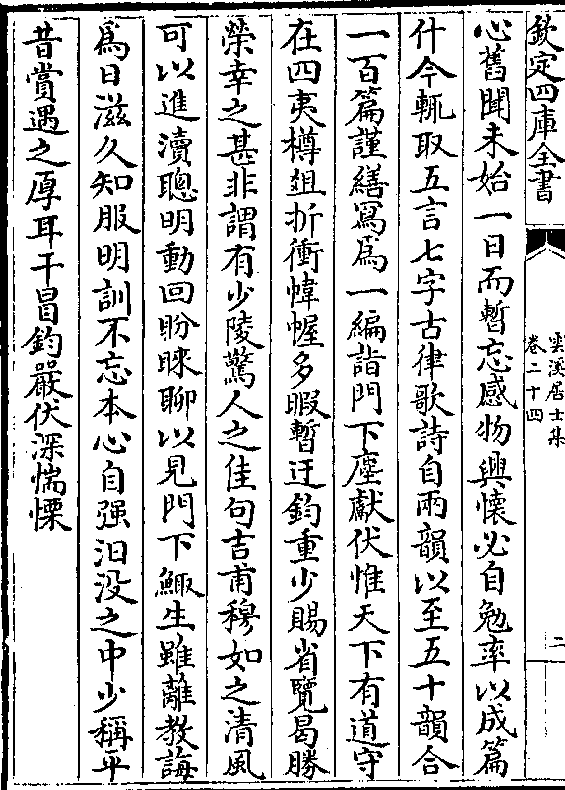 欽定四庫全書
雲溪居士集
卷二十四
二
心舊聞未始一日而暫忘感物興懷必自勉率以成篇
什今輒取五言七字古律歌詩自兩韻以至五十韻合
一百篇謹繕寫爲一編詣門下塵獻伏惟天下有道守
在四夷樽俎折衝幃幄多暇暫迂鈞重少賜省覽曷勝
榮幸之甚非謂有少陵驚人之佳句吉甫穆如之清風
可以進瀆聰明動回盼睞聊以見門下鯫生雖離教誨
爲日滋久知服明訓不忘本心自强汨没之中少稱平
昔賞遇之厚耳干冒鈞嚴伏深惴慄